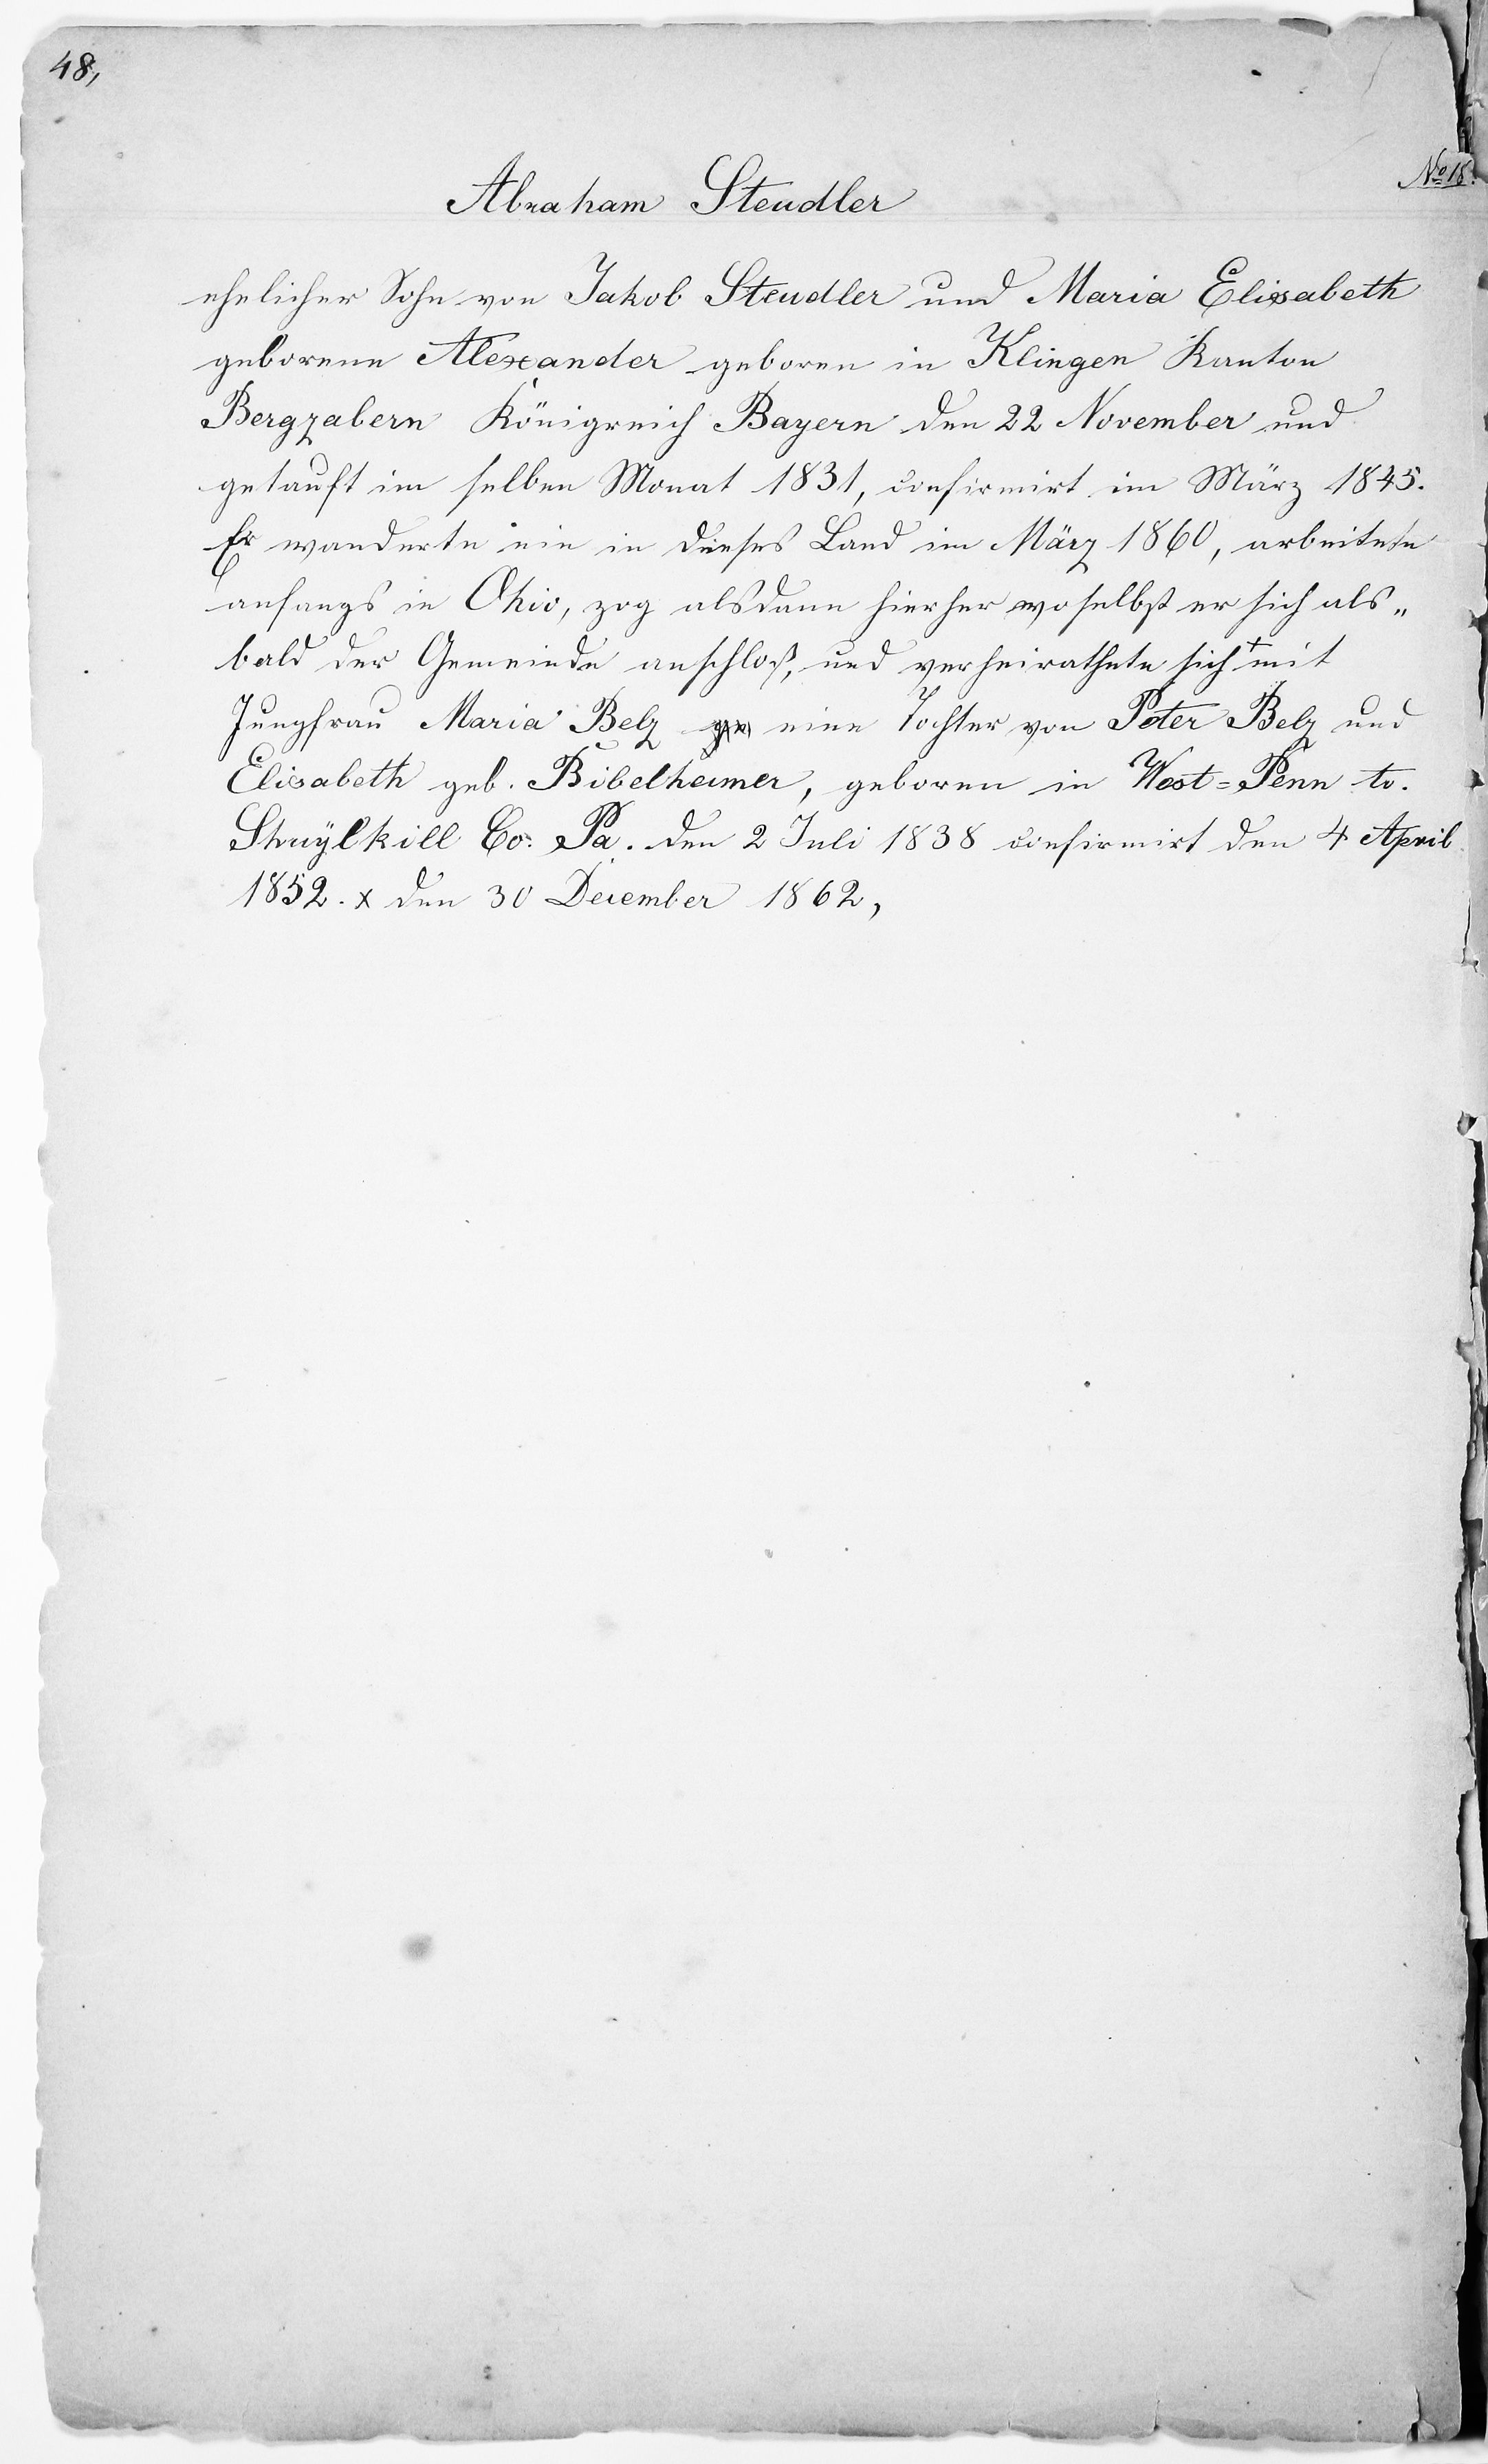 48,
No 18.
Abraham Steudler
ehelicher Sohn von Jakob Steudler und Maria Elisabeth
geborene Alexander geboren in Klingen Kanton
Bergzabern Königreich Bayern den 22 November und
getauft im selben Monat 1831, confirmirt im März 1845.
Er wanderte ein in dieses Land im März 1860, arbeitete
anfangs in Ohio, zog alsdann hierher woselbst er sich als„
bald der Gemeinde anschloß, und verheirathete sich + mit
Jungfrau Maria Belz eine Tochter von Peter Belz und
Elisabeth geb. Bibelheimer, geboren in West=Penn to.
Shuÿlkill Co: Pa. den 2 Juli 1838 confirmirt den 4 April
1852. x den 30 December 1862,